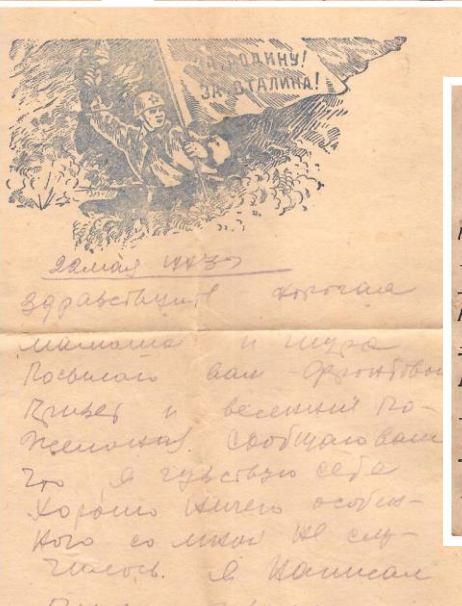 ЗА РОДИНУ!
ЗА СТАЛИНА!
22 мая 1943 г
Здравствуйте дорогая
мамаша и Шура
Посылаю вам фронтовой
Привет и
Сообщаю вам
Что я чувствую себя
Хорошо Ничего особен-
ного со мной не слу-
чилось. Я написал